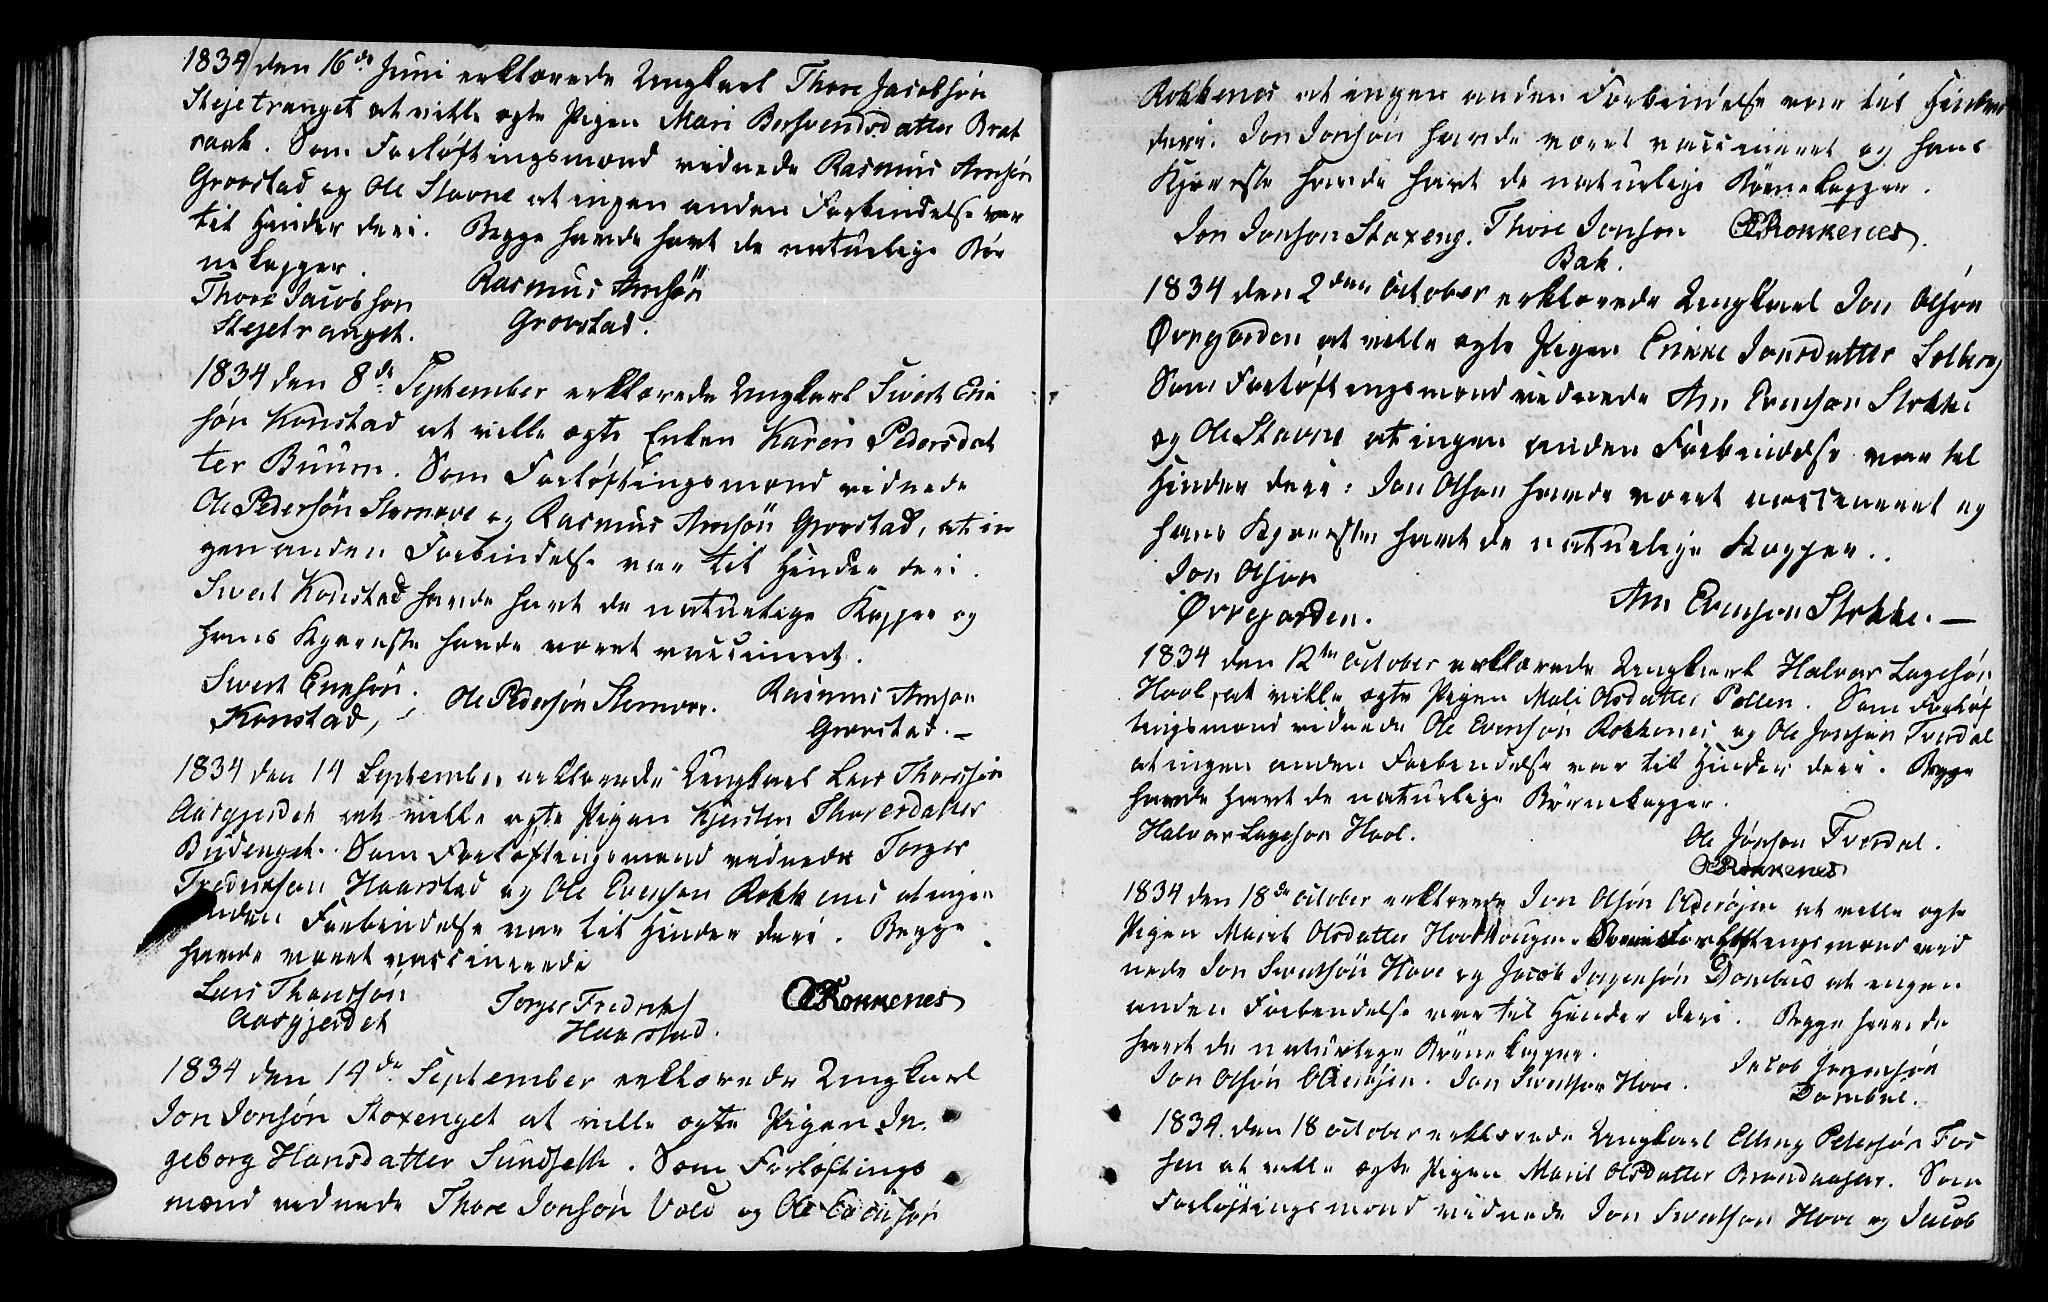 1834 den 16de Juni erklærede Ungkarl Thore Jacobsøn
Stejetranget at ville ægte Pigen Mari Bersvendsdatter Brat
raak. Som Forløftingsmænd vidnede Rasmus Arnsøn
Grovstad og Ole Stavne at ingen anden Forbindelse var
til Hinder deri. Begge havde havt de naturlige Bør
nekopper.
Thore Jacobson
Stejetranget.
Rasmus Arnsøn
Grovstad.
1834 den 8de September erklærede Ungkarl Sivert Erik
søn Konstad at ville ægte Enken Karen Pedersdat
ter Buum. Som Forløftingsmænd vidnede
Ole Pedersøn og Rasmus Arnsøn Grovstad, at in
gen anden Forbindelse var til Hinder deri.
Sivert Konstad havde havt de naturlige Kopper og
hans Kjæreste havde været vaccineret.
Sivert
Konstad,
Ole Pedersøn
Rasmus Arnson
Grovstad.
1834 den 14 September erklærede Ungkarl Lars Thorsøn
Aasgjerdet at ville ægte Pigen Kjersten Thoresdatter
Budenget. Som Forløftingsmænd vidnede Torger
Fredrikson Haarstad og Ole Evenson Rokkenes at ingen
anden Forbindelse var til Hinder deri. Begge
havde været vaccinerede
Lars
Aasgjerdet
Torger Fredriks
Haarstad.
OERokkenes
1834 den 14de September erklærede Ungkarl
Jon Jonsøn Stoxenget at ville ægte Pigen In
geborg Hansdatter Sundseth. Som Forløftings
mænd vidnede Thore Jonsøn Vold og Ole Evensøn
Rokkenes at ingen anden Forbindelse var til Hinder
deri. Jon Jonsøn havde været vaccineret og hans
Kjæreste havde havt de naturlige Børnekopper.
Jon Jonson Stoxeng. Thore Jonson OERokkenes.
Bak.
1834 den 2den October erklærede Ungkarl Jon Olsøn
Øvregarden at ville ægte Pigen Jonsdatter Solberg
Som Forløftingsmænd vidnede Arn Evensøn Stokke
og Ole Stavne at ingen anden Forbindelse var til
Hinder deri: Jon Olson havde været vaccineret og
hans Kjæreste havt de naturlige Kopper.
Jon Olson
Øvregarden.
Arn Evenson Stokke.
1834 den 12te October erklærede Ungkarl Halvar Lagesøn
Hool, at ville ægte Pigen Mali Olsdatter Pollen. Som Forløf
tingsmænd vidnede Ole Evensøn Rokkenes og Ole Jonsøn Tverdal
at ingen anden Forbindelse var til Hinder deri. Begge
havde havt de naturlige Børnekopper.
Halvar Lageson Hool.
Ole Jønson Tverdal.
OERokkenes
1834 den 18de October erklærede Jon Olsøn at ville ægte
Pigen Marit Olsdatter Som Forløftingsmænd vid
nede Jon Sivertsøn Hove og Jacob Jørgensøn Dombus at ingen
anden Forbindelse var til Hinder deri. Begge havde
havt de naturlige Børnekopper.
Jon Olsøn Jon Sivertson Hove.
Jacob Jørgensøn
1834. den 18 October erklærede Ungkarl Elling Petersøn Fos
sen at ville ægte Pigen Marit Olsdatter Som
Forløftingsmænd vidnede Jon Sivertson Hove og Jacob